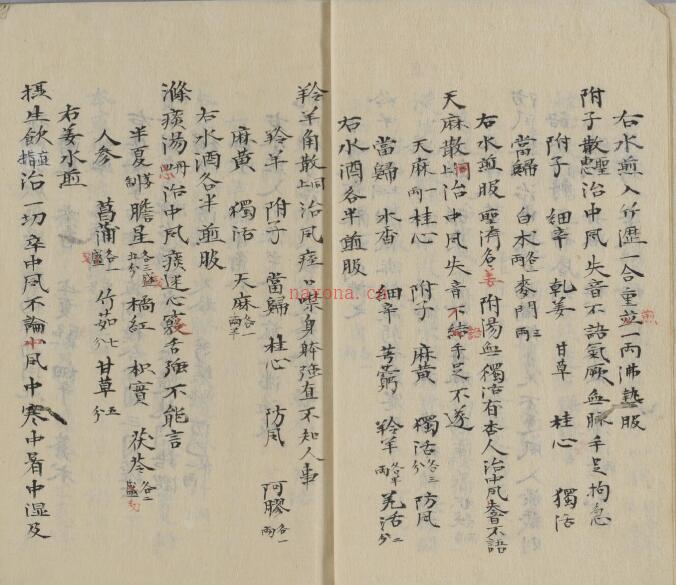 右水煎入竹瀝一合重煎一两沸熱服
附子散聖惠治中風失音不語氣厥無脉手足拘急
附子 細辛 乾姜 甘草 桂心 獨活
當歸 白朮各一两 麥門三两
右水煎服聖濟名姜附湯無獨活有杏人治中風失音不語
天麻散同上治中風失音不語手足不遂
天麻一两 桂心 附子 麻黄 獨活各三分 防風
當歸 木香 細辛 芎藭 羚羊各半两 羌活二分
右水酒各半煎服
羚羊角散同上治風痙口噤身躰強直不知人事
羚羊 附子 當歸 桂心 防風 阿膠各一两
麻黄 獨活 天麻各一两半
右水酒各半煎服
滌痰湯治中風痰迷心竅舌強不能言
半夏制 膽星 橘紅 枳實 茯苓各二
人參 菖蒲各一 竹茹七分 甘草五分
右姜水煎
攝生飲直指治一切卒中風不論中風中寒中暑中湿及
narona.ca